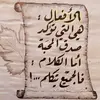 الأفعال :
هو التي تؤكد
صدق المحبة
أما الكلام :
فالجميع يتكلم...!